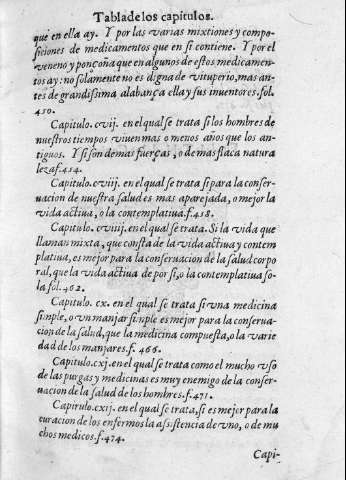 Tabla de los capitulos.
que en ella ay. Y por las varias mixtiones y compo-
siciones de medicamentos que en si contiene. Y por el
veneno y ponçoña que en algunos de estos medicamen-
tos ay: no solamente no es digna de vituperio, mas an-
tes de grandissima alabança ella y sus inuentores. fol.
450.
Capitulo. cvij. en el qual se trata si los hombres de
nuestros tiempos viuen mas o menos años que los an-
tiguos. Y si son de mas fuerças, o de mas flaca natura
leza f. 454.
Capitulo. cviij. en el qual se trata si para la conser-
uacion de nuestra salud es mas aparejada, o mejor la
vida actiua, o la contemplatiua. f. 458.
Capitulo. cviiij. en el qual se trata. Si la vida que
llaman mixta, que consta de la vida actiua y contem
platiua, es mejor para la conseruacion de la salud corpo
ral, que la vida actiua de por si, o la contemplatiua so-
la fol. 462.
Capitulo. cx. en el qual se trata si vna medicina
simple, o vn manjar simple es mejor para la conserua-
cion de la salud, que la medicina compuesta, o la varie
dad de los manjares. f. 466.
Capitulo. cxj. en el qual se trata como el mucho vso
de las purgas y medicinas es muy enemigo de la conser-
uacion de la salud de los hombres. f. 471.
Capitulo. cxij. en el qual se trata, si es mejor para la
curacion de los enfermos la assistencia de vno, o de mu
chos medicos. f. 474.
Capi-